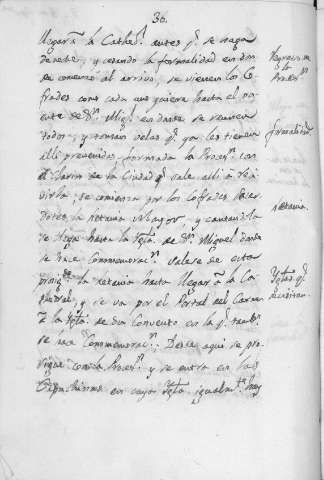 30.
llegar à la Cathed.l antes q.e se haga
de noche, y cesando la formalidad en
al arrivo, se vienen los Co-
frades como cada uno quiere hasta el po-
ente de S.n Mig.l en donde se reunen
todos, y toman velas q.e ya les tienen
alli prevenidas, formada la Proces.n con
el Clamor de la Ciudad q.e sale alli à reci-
birla, se comienza por los Cofrades Sacer-
dotes la Letania y cantandola
se llega hasta la Ygl.a de S.n Miguel donde
se hace Commemorac.n Sale de esta
prosig.do la Letania hasta llegar à la Ca-
thedral, y se va por el Portal del Carmen
à la Ygl.a de su Convento en la q.e tamb.n
se hace Commemorac.n; Desde aqui se pro-
sigue con la Proces.n y se entra en la
en cuya Ygl.a igualm.te hay
Regreso de
la
Proces.n
formalidad
Letania
Ygl.as q.e
se visitan.